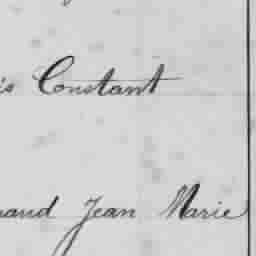 is Constant
naud Jean Marie